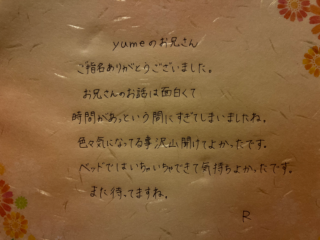 yumeのお兄さん
ご指名ありがとうございました。
お兄さんのお話は面白くて
時間があっという間にすぎてしまいましたね。
色々気になってる事沢山聞けてよかったです。
ベッドではいちゃいちゃできて気持ちよかったです。
また待ってますね。
R